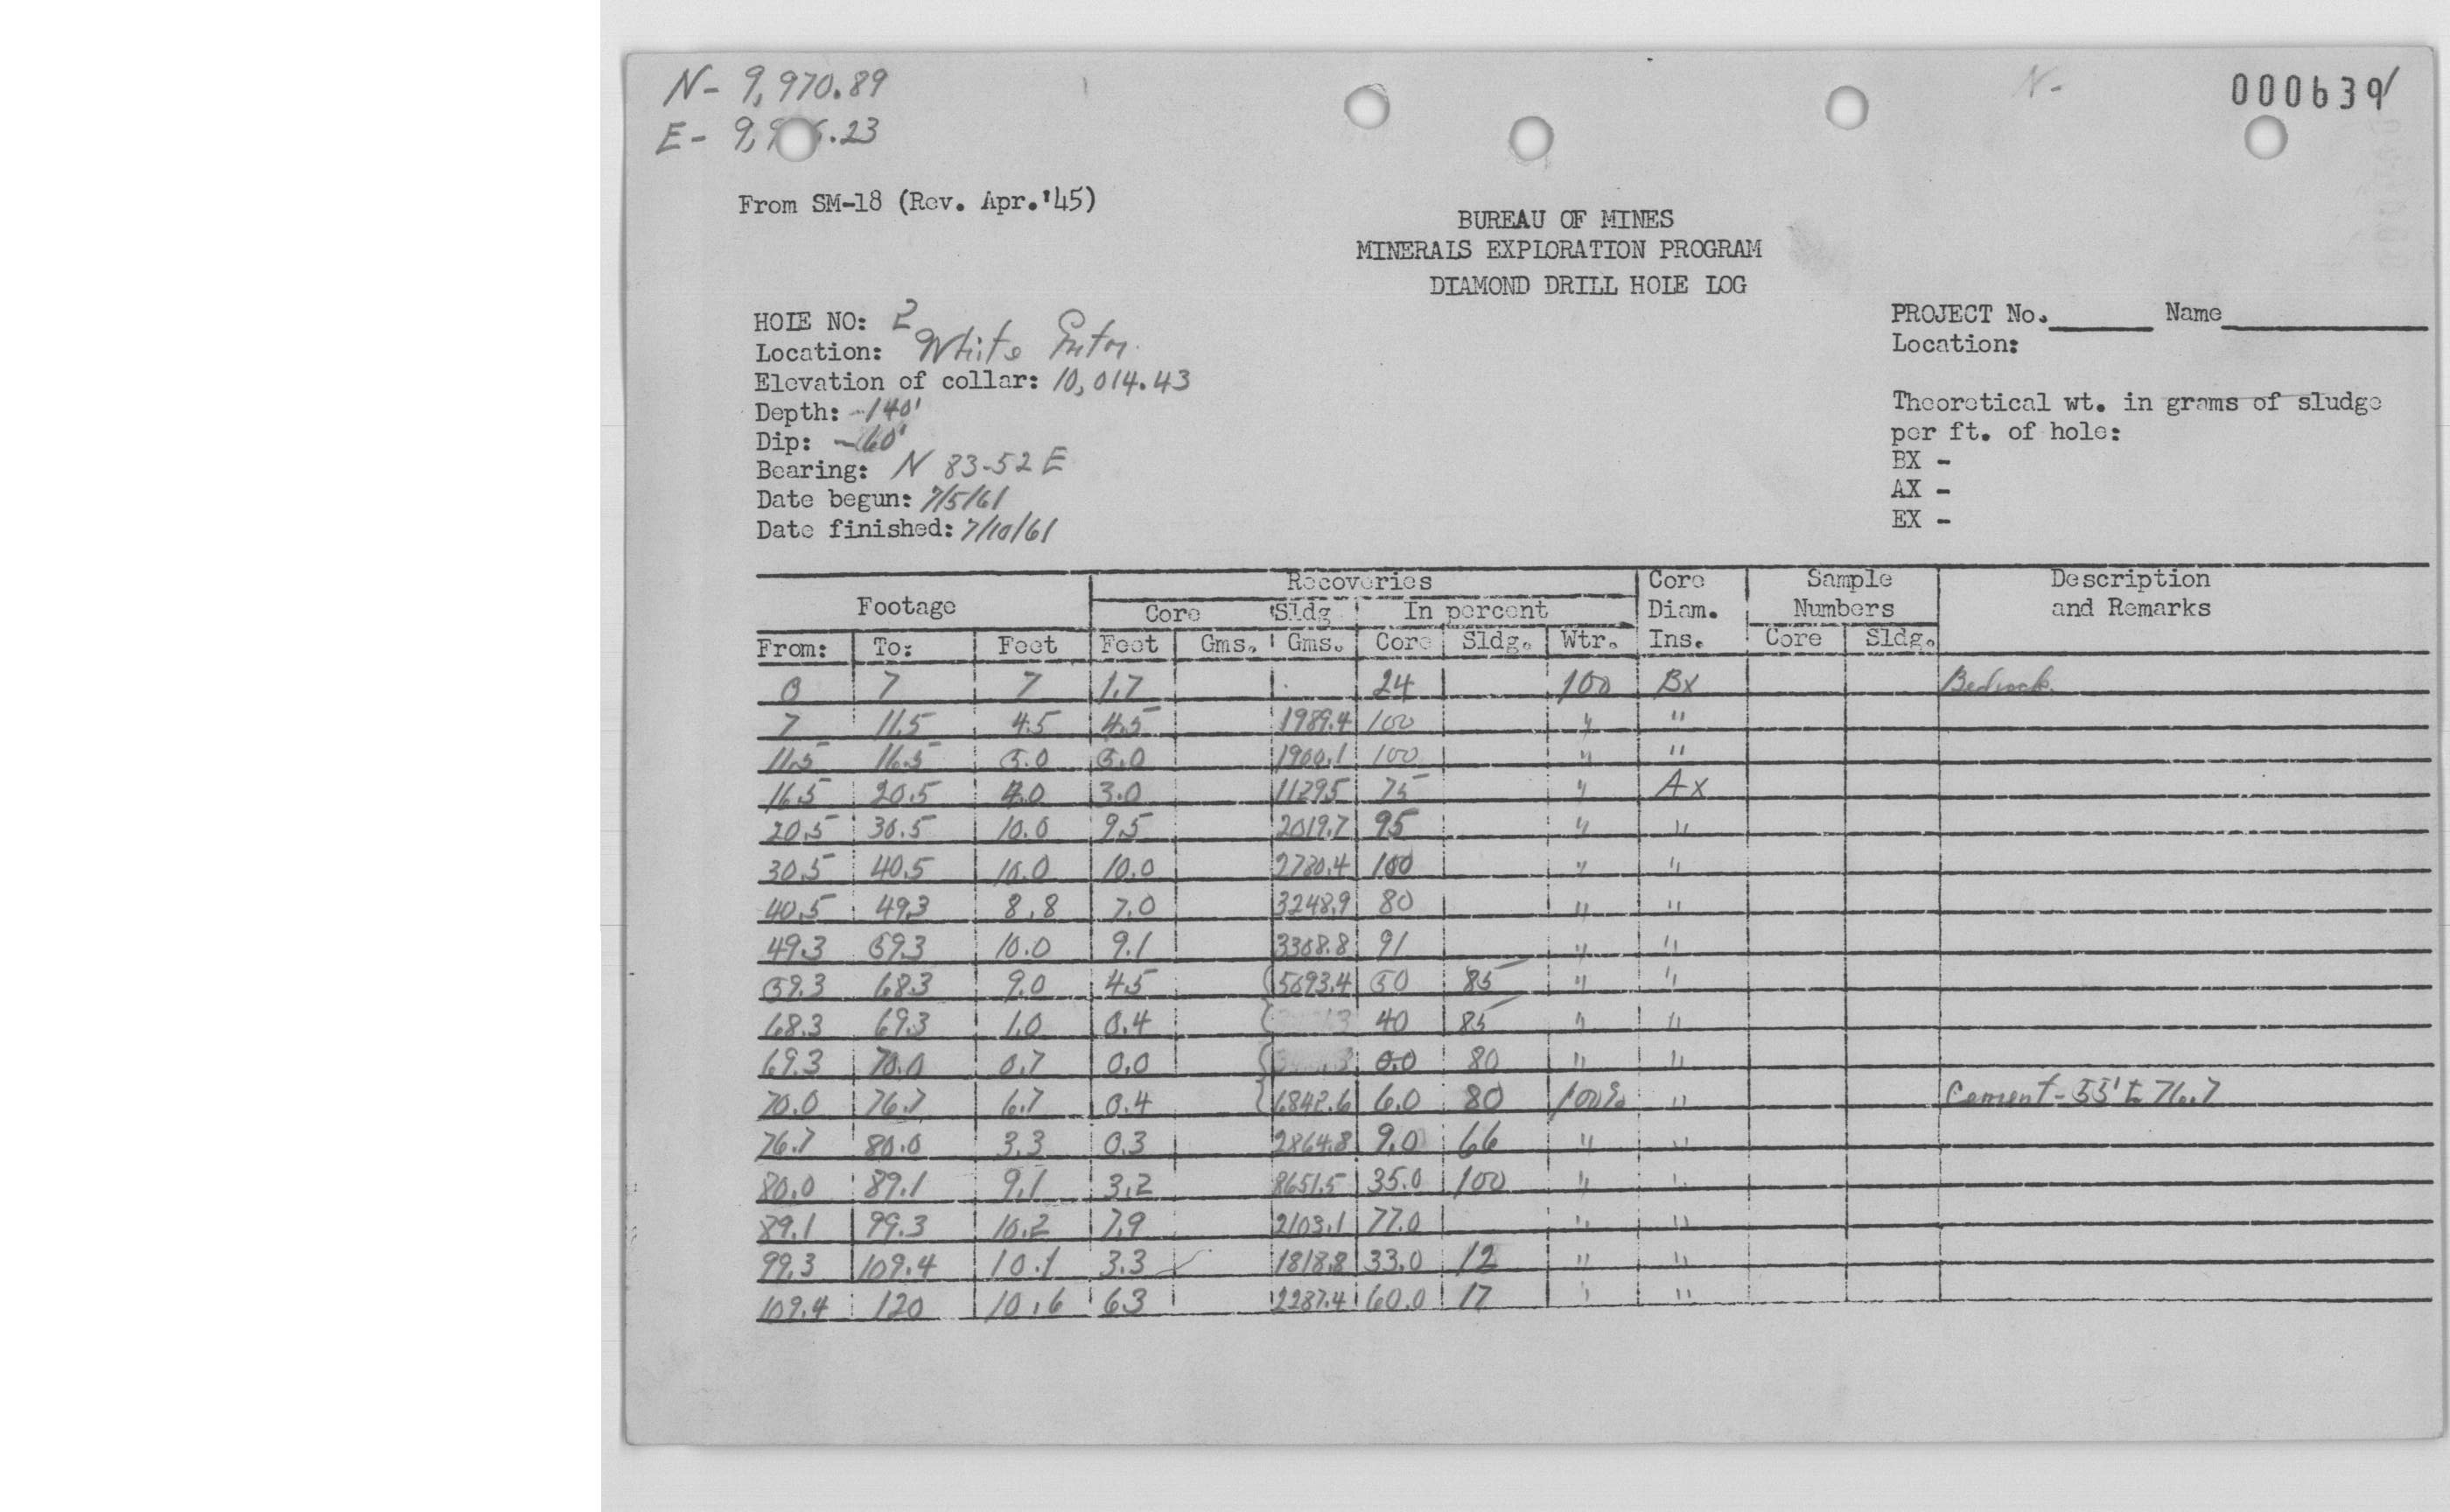 N- 9,970.89
N-
000639
E- .23
From SM-18 (Rev. Apr.'45)
BUREAU OF MINES
MINERALS EXPLORATION PROGRAM
DIAMOND DRILL HOLE LOG
HOLE NO: 2
PROJECT No. Name
Location: White
Location:
Elevation of collar: 10,014.43
Depth: -140'
Theoretical wt. in grams of sludge
Dip: -60'
per ft. of hole:
Bearing: N 83-52 E
BX -
Date begun: 7/5/61
AX -
Date finished: 7/10/61
EX -
Recoveries Core Sample Description
Footage Core Sldg In percent Diam. Numbers and Remarks
From: To: Feet Feet Gms. Gms. Core Sldg. Wtr. Ins. Core Sldg.
0 7 7 1.7 24 100 Bx Bedrock
7 11.5 4.5 4.5 1989.4 100 " "
11.5 16.5 5.0 5.0 1900.1 100 " "
16.5 20.5 4.0 3.0 1129.5 75 " Ax
20.5 30.5 10.0 9.5 2019.7 95 " "
30.5 40.5 10.0 10.0 2780.4 100 " "
40.5 49.3 8.8 7.0 3248.9 80 " "
49.3 59.3 10.0 9.1 3308.8 91 " "
59.3 68.3 9.0 4.5 5693.4 50 85 " "
68.3 69.3 1.0 0.4 40 85 " "
69.3 70.0 0.7 0.0 0.0 80 " "
70.0 76.7 6.7 0.4 6842.6 6.0 80 100% " Cement - 55' to 76.7
76.7 80.0 3.3 0.3 2864.8 9.0 66 " "
80.0 89.1 9.1 3.2 8651.5 35.0 100 " "
89.1 99.3 10.2 7.9 2103.1 77.0 " "
99.3 109.4 10.1 3.3 1818.8 33.0 12 " "
109.4 120 10.6 6.3 2287.4 60.0 17 " "